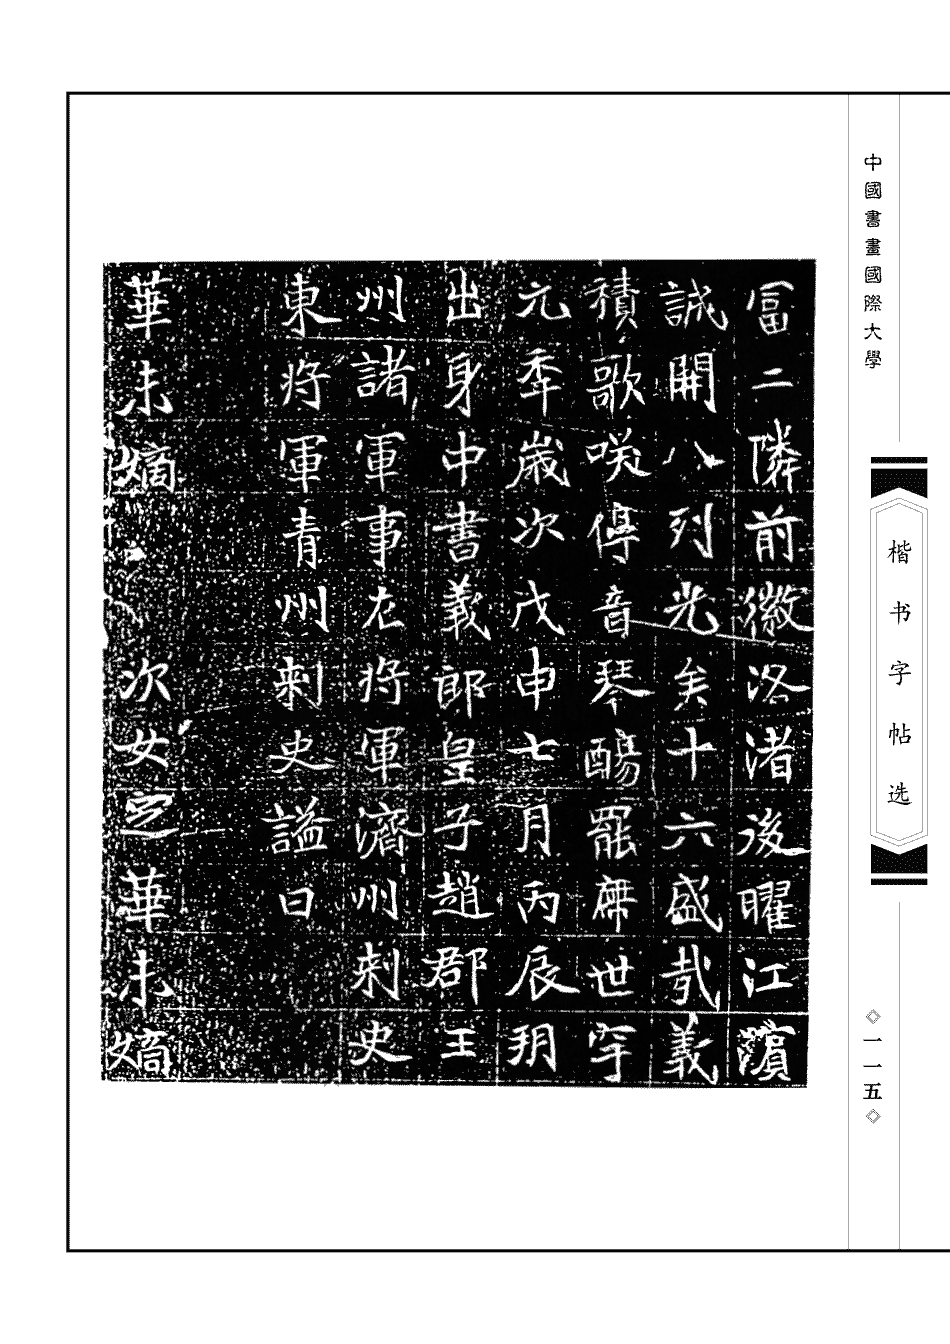 中國書畫國際大學
楷书字帖选
一一五
冨二隣前徽洛渚後曜江濱
誠開八列光矣十六盛哉義
積歌咲停音琴觴罷席世罕
元年歲次戊申七月丙辰朔
出身中書義郎皇子趙郡王
州諸軍事左將軍濟州刺史
東將軍青州刺史謚曰
華未嫡次女芝華未嫡